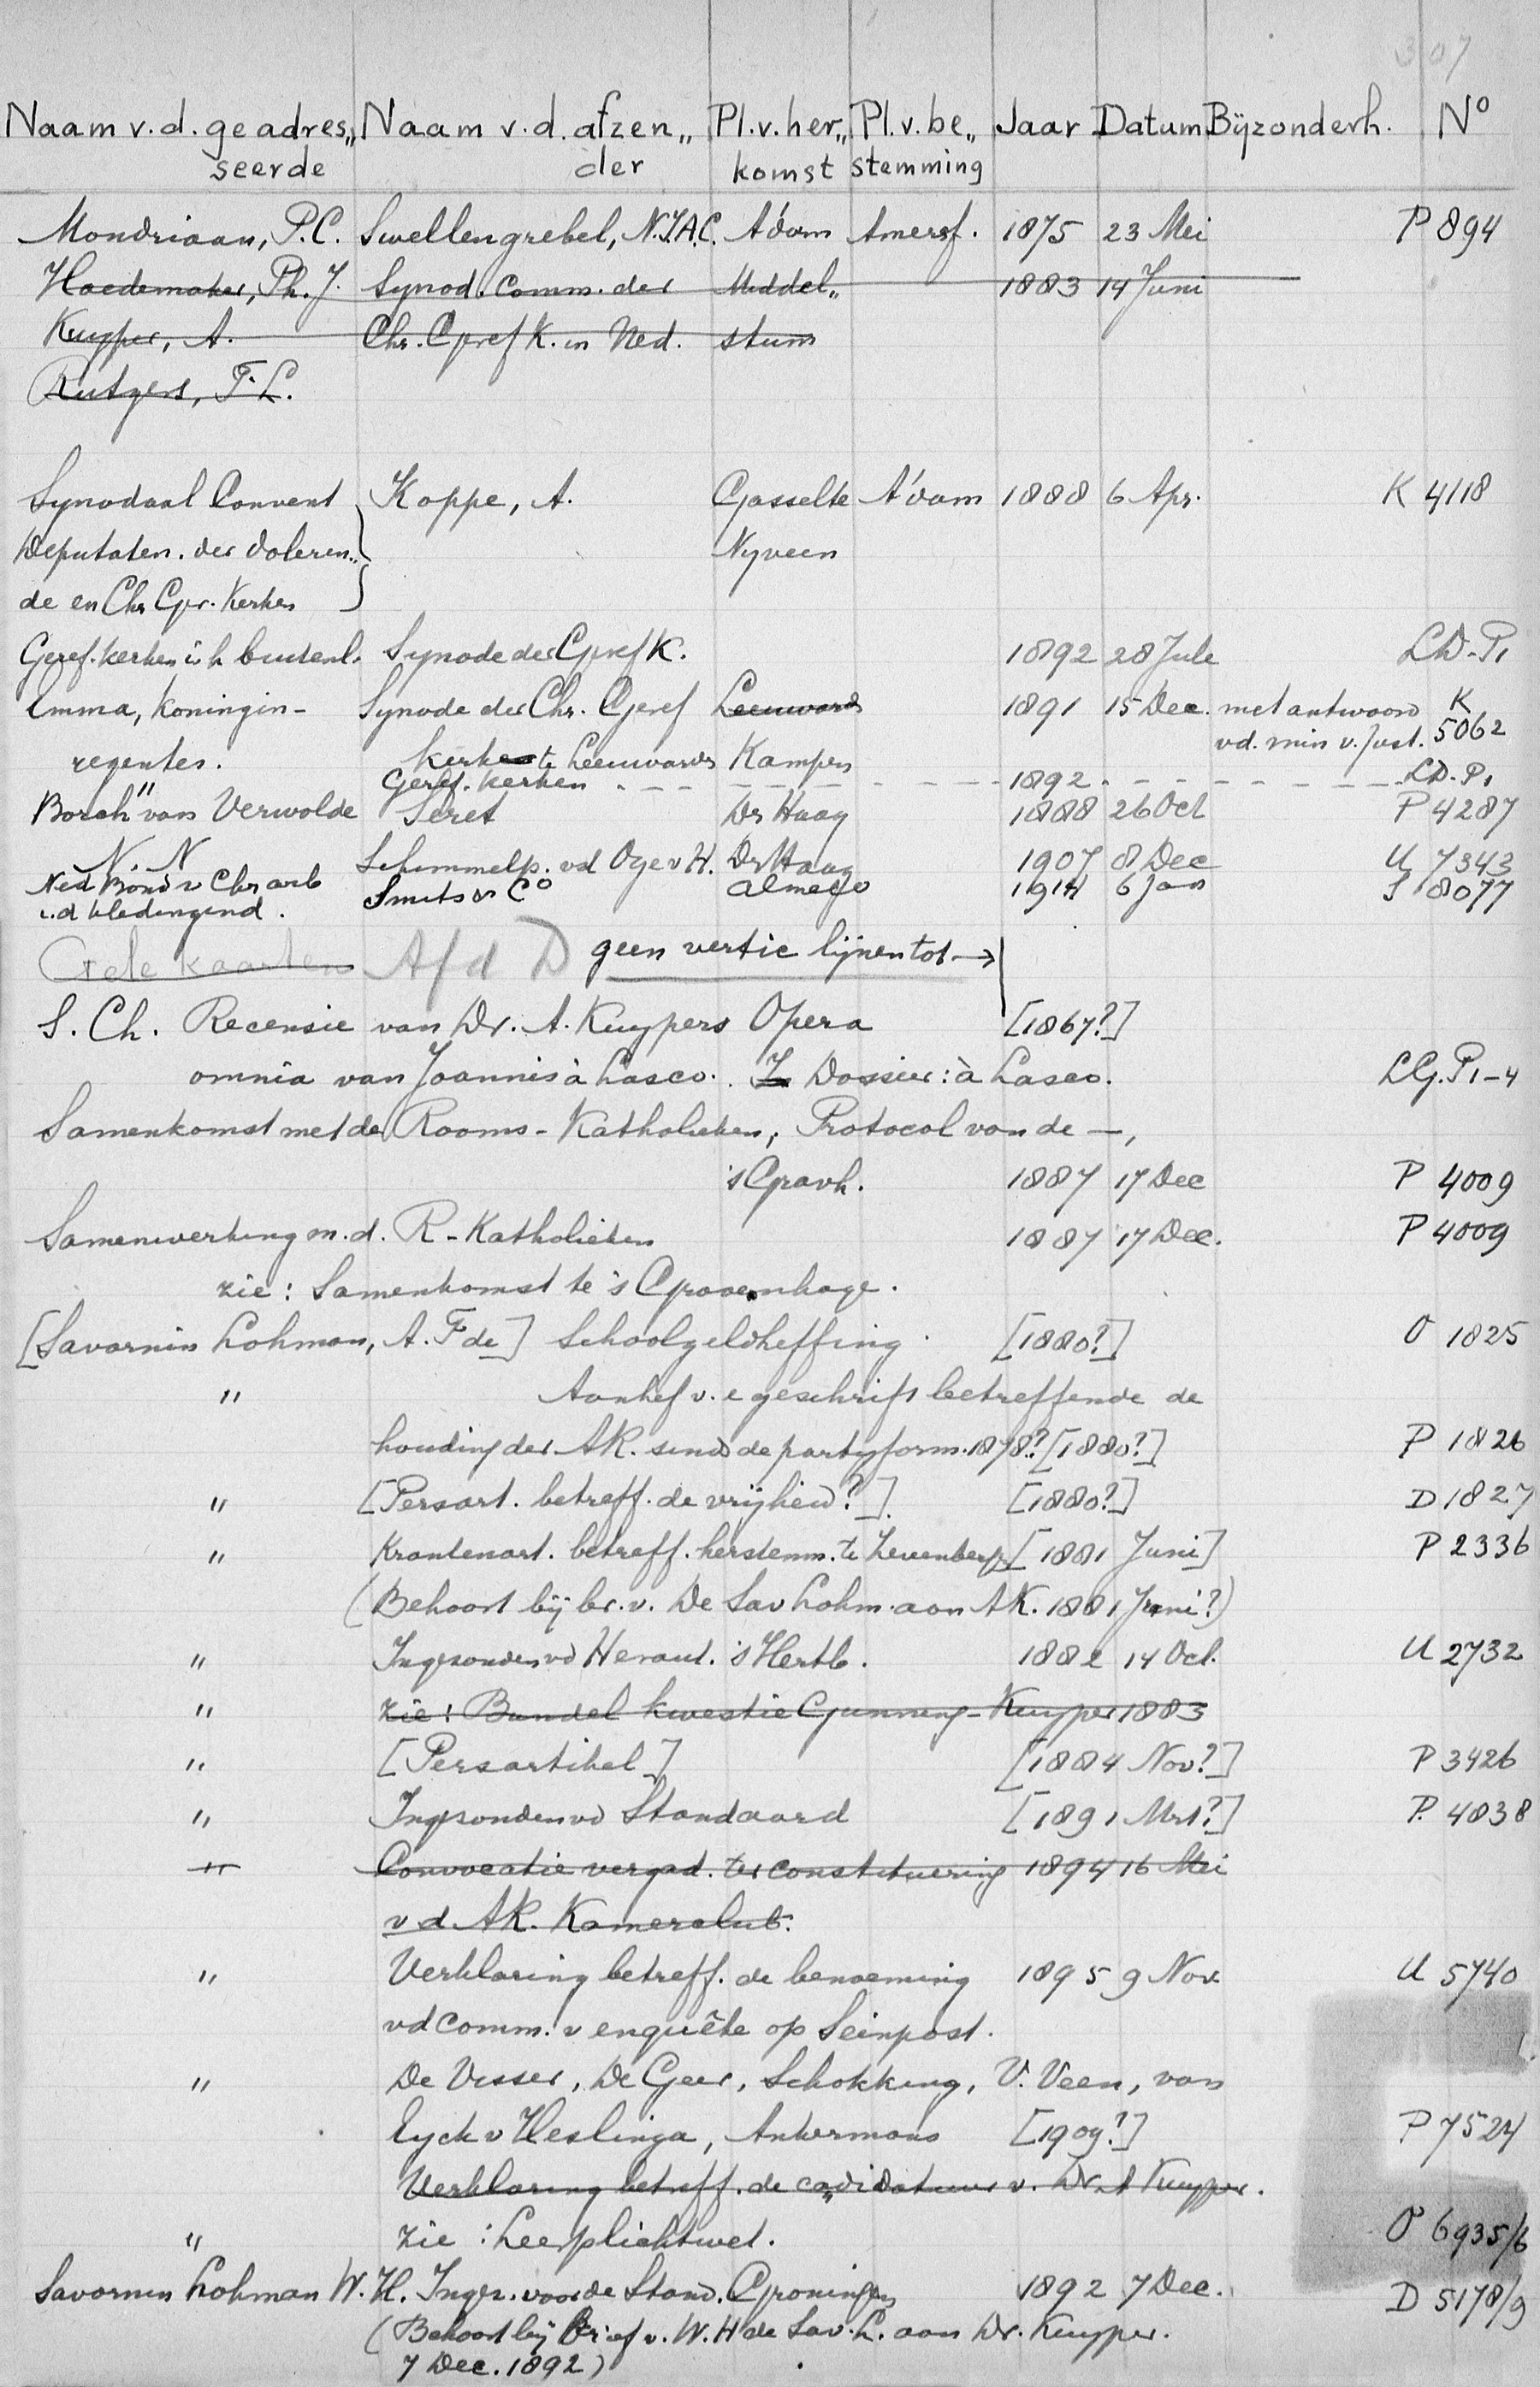 307
Naam v.d. geadres„ Naam v.d. afzen„ Pl.v.her„ Pl.v.be„ Jaar Datum Bijzonderh. No
seerde der komst stemming
Mondriaan, P.C. Swellengrebel, N.J.A.C. A'dam Amersf. 1875 23 Mei P 894
Hoedemaker, Ph. J. Synod. Comm. der Middel„ 1883 14 Juni
Kuyper, A. Chr. Geref K. in Ned. stum
Rutgers, F.L.
Synodaal Convent Koppe, A. Gasselte A'dam 1888 6 Apr. K 4118
Deputaten. der doleren„ Nyveen
de en Chr Ger. Kerken
Geref. kerken i h buitenl. Synode der Geref K. 1892 28 Jule LD. P1
Emma, koningin- Synode der Chr. Geref Leeuward 1891 15 Dec. met antwoord K
regentes. kerke te Leeuwarden Kampen vd. min v. Just. 5062
" Geref. kerken - - - 1892 - - - LD. P1
Bosch van Verwolde Seret Dn Haag 1888 26 Oct P 4287
N. N Schimmelp. vd Oye v H. Dn Haag 1907 8 Dec U 7343
Ned Bond v Chr arb Smits & Co Almelo 1914 6 Jan S 8077
i.d kledingind.
Gele kaarten Afd D geen vertic lijnen tot →
S. Ch. Recensie van Dr. A. Kuypers Opera [1867?]
omnia van Joannis à Lasco. In Dossier: à Lasco. LG. P1-4
Samenkomst met de Rooms-Katholieken, Protocol van de —,
's Gravh. 1887 17 Dec P 4009
Samenwerking m.d. R-Katholieken 1887 17 Dec. P 4009
zie: Samenkomst te 's Gravenhage.
[Savornin Lohman, A. F de] Schoolgeldheffing [1880?] O 1825
" Aanhef v. e geschrift betreffende de
houding der AR. sinds de partyform. 1878? [1880?] P 1826
" [Persart. betreff. de vrijheid?] [1880?] D 1827
" Krantenart. betreff. herstemm. te Zevenbergen [1881 Juni] P 2336
(Behoort bij br. v. De Sav Lohm. aan AK. 1881 Juni?)
" Ingezonden vd Heraut. 's Hertb. 1882 14 Oct. U 2732
" zie: Bundel kwestie Gunning-Kuyper 1883
" [Persartikel] [1884 Nov?] P 3426
" Ingezonden vd Standaard [1891 Mrt?] P. 4838
" Convocatie vergad. ter constituering 1894 16 Mei
v d. AR. Kamerclub.
" Verklaring betreff. de benoeming 1895 9 Nov U 5740
vd comm. v enquête op Seinpost.
" De Visser, De Geer, Schokking, V. Veen, van
Eyck v Heslinga, Ankermans [1909?] P 7524
Verklaring betreff. de candidatuur v. Dr. A Kuyper.
" zie: Leerplichtwet. O 6935/6
Savornin Lohman W. H. Ingez. voor de Stand. Groningen 1892 7 Dec. D 5178/9
(Behoort bij Brief v. W. H de Sav. L. aan Dr. Kuyper.
7 Dec. 1892)